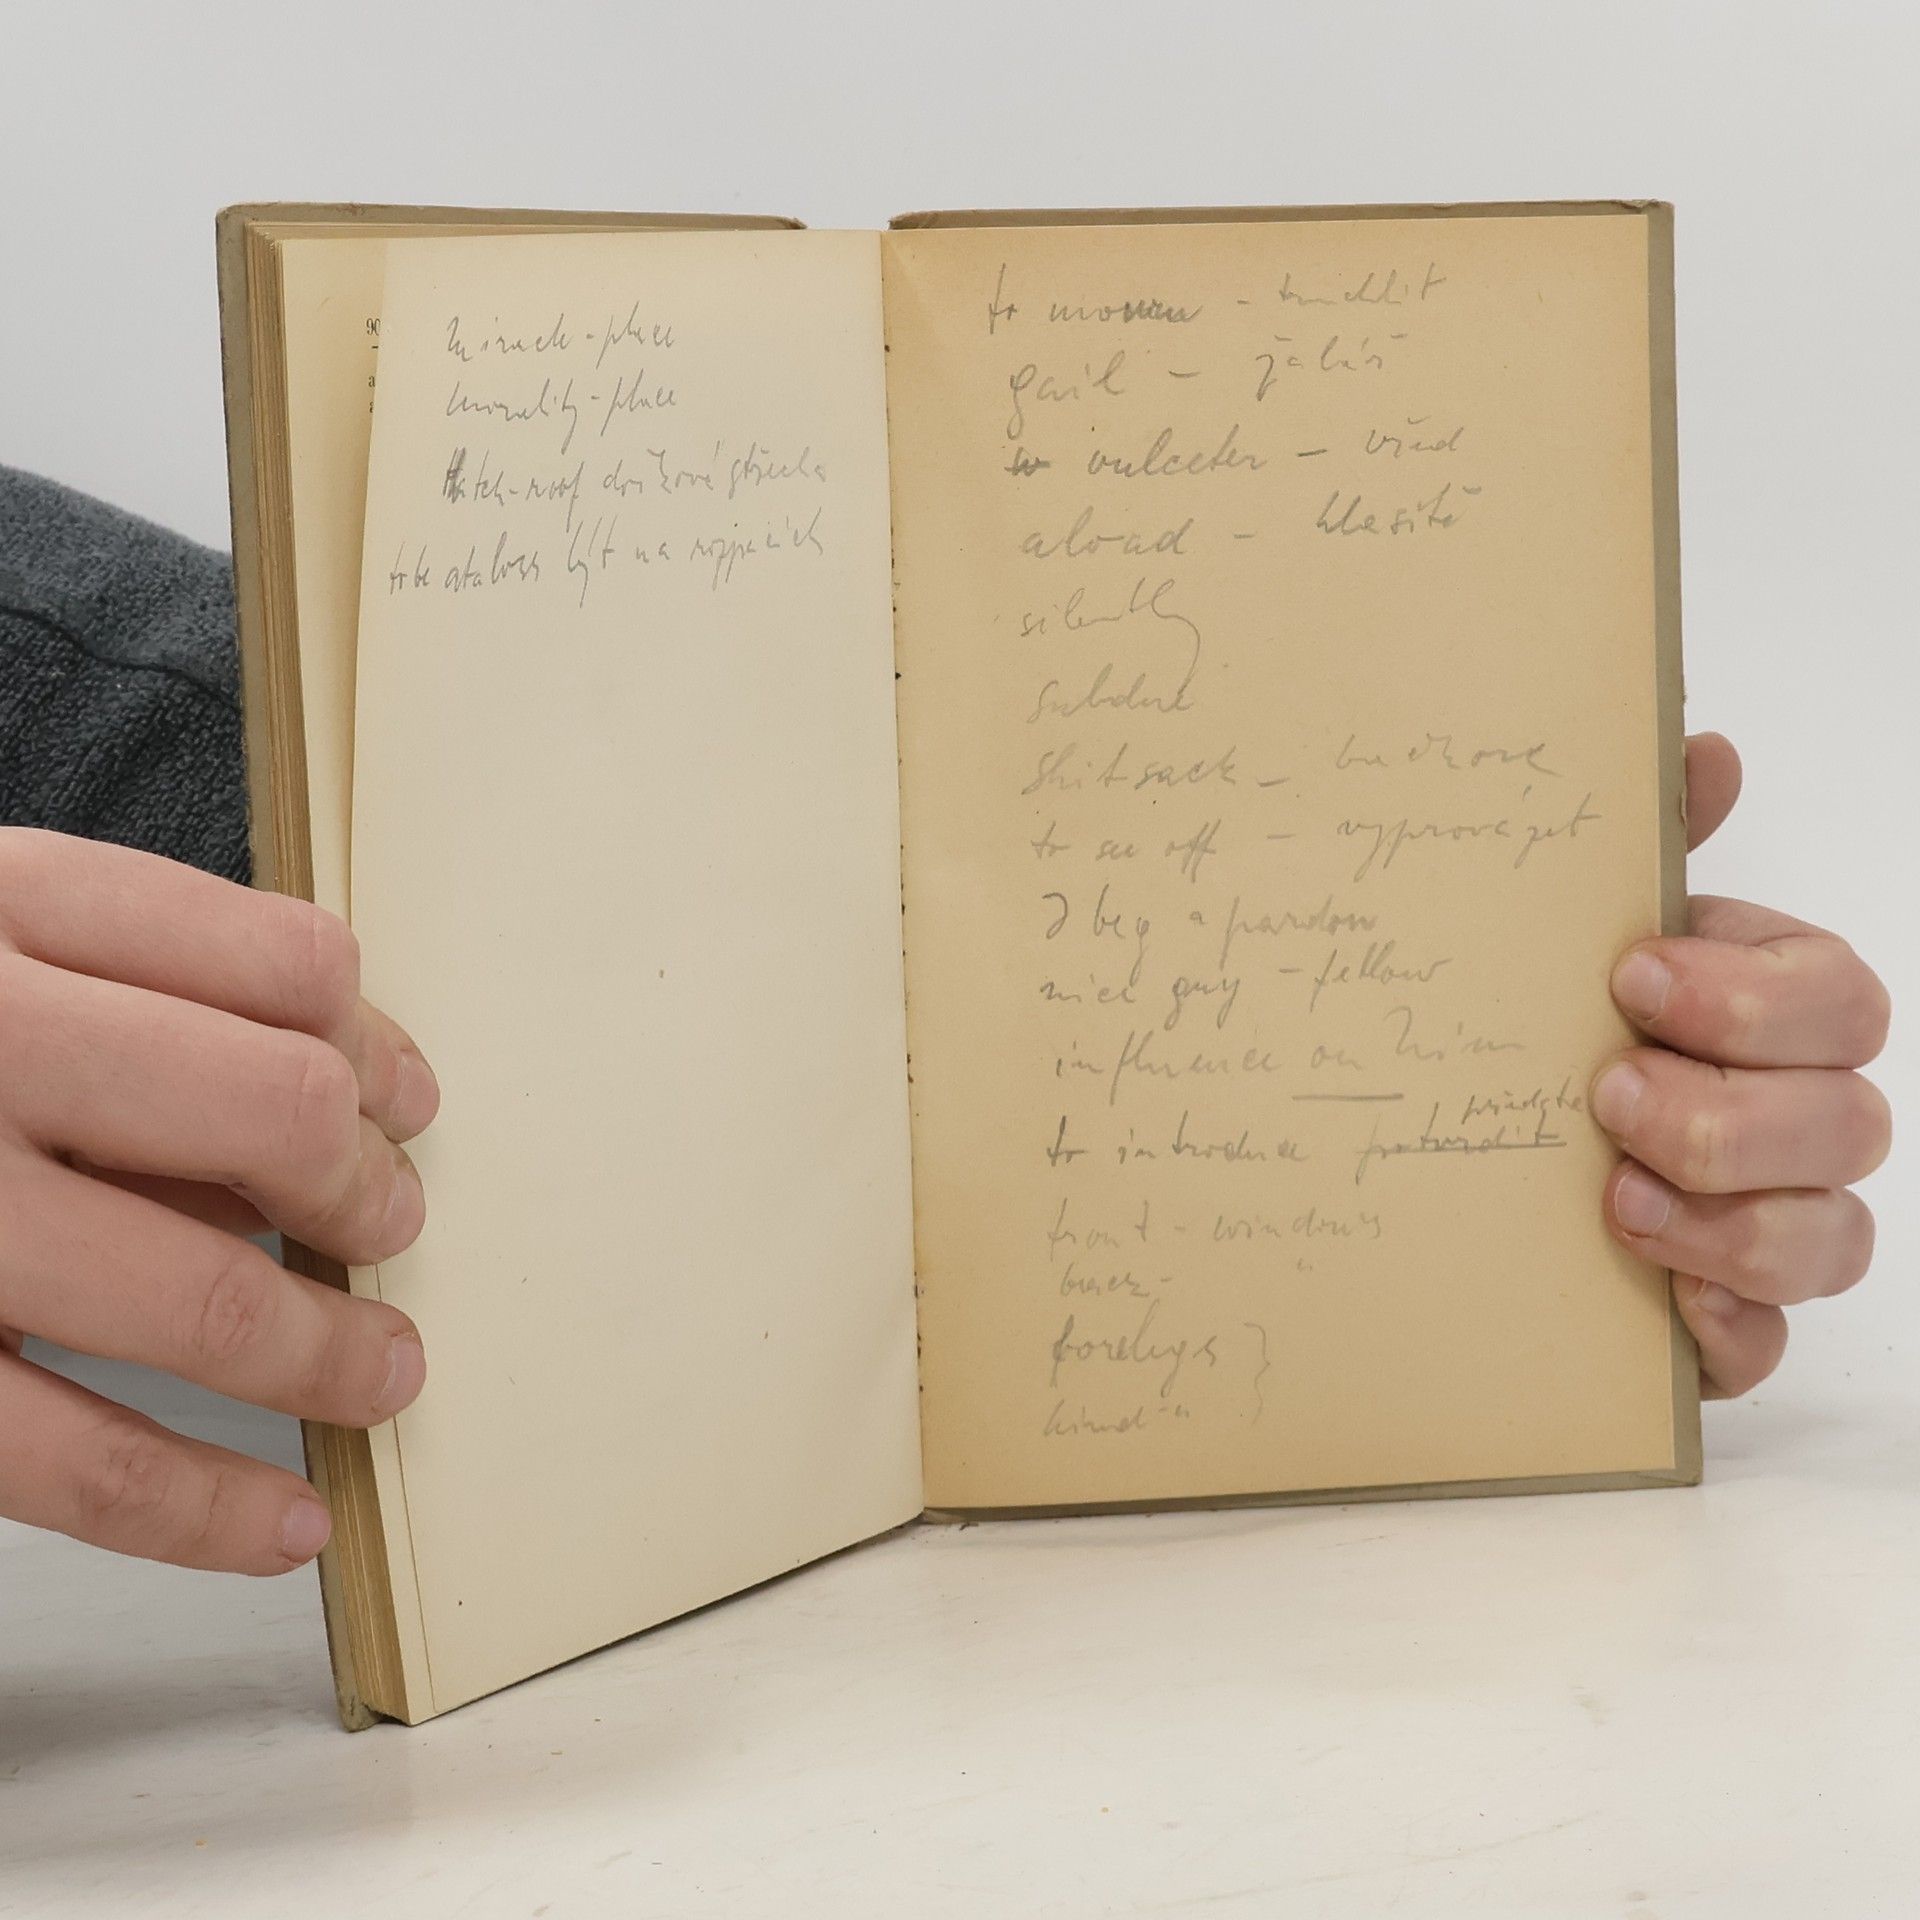 90
a
a
Miracle-place
Morality-place
thatch-roof došková střecha
to be at a loss být na rozpacích
to mourn - truchlit
gail - žalář
vulceter - vřed
aload - hlasitě
silently
subdue
Shitsack -
to see off - vyprovázet
I beg a pardon
nice guy - fellow
influence on him
to introduce potvrdit
front - windows
back - "
forelegs }
hind - "